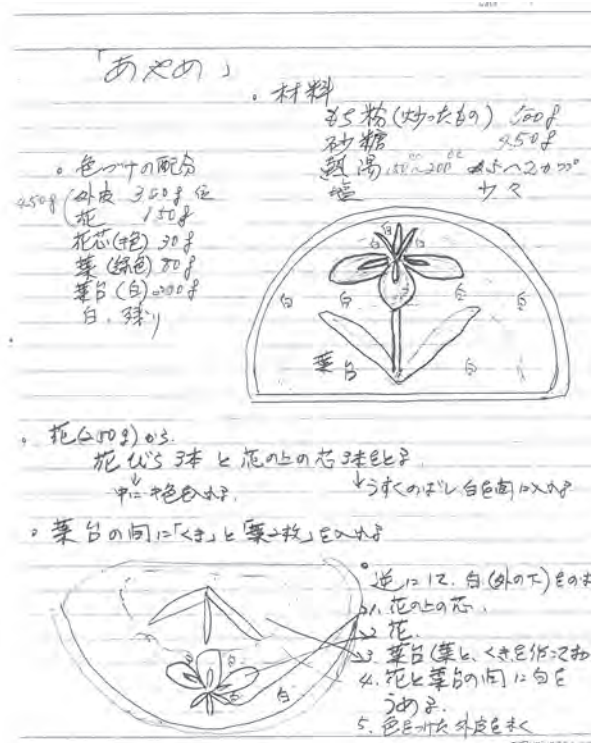 「あやめ」
。材料
もち粉(炒ったもの) 500g
砂糖 450g
熱湯 150〜200cc カップ
塩 少々
。色づけの配分
450g
外皮 300g位
花 150g
花芯(黄色) 30g
葉(緑色) 80g
葉台(白) 200g
白、残り
白 白 白
白 白 白 白
葉台 白 白
。花(150g)から
花びら3本と花の上の芯3本をとる。
中に黄色を入れる。
うすくのばし白を間に入れる
。葉台の間に「くき」と「葉2枚」を入れる
逆にして、白(外の下)をのせ
1. 花の上の芯。
2 花.
3. 葉台(葉と、くきを作って
4. 花と葉台の間に白を
うめる.
5. 色をつけた外皮をまく
白 白 白